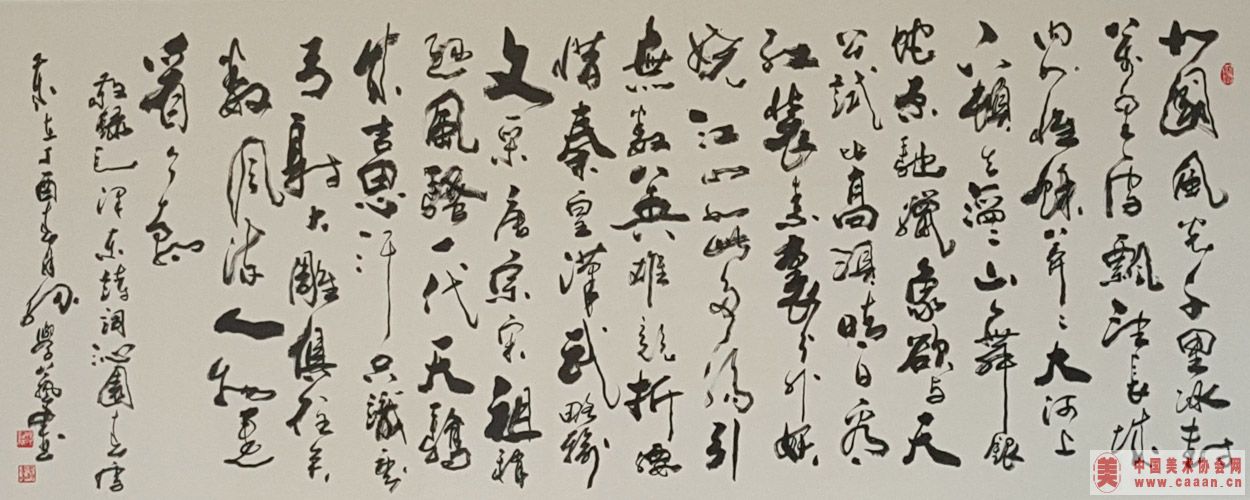 北國風光千里冰封
萬里雪飄望長城
内外惟餘莽〻大河上
下頓失滔〻山舞銀
蛇原馳蠟象欲与天
公試比高須晴日看
红裝素裹分外妖
娆江山如此多嬌引
無數英雄競折腰
惜秦皇漢武略輸
文采唐宗宋祖稍
遜風騷一代天驕
成吉思汗只識彎
弓射大雕俱往矣
數風流人物還
看今朝
敬録毛澤東詩詞沁園春雪
歲在丁酉春月 學藝書
中国美术协会网
www.caaan.cn